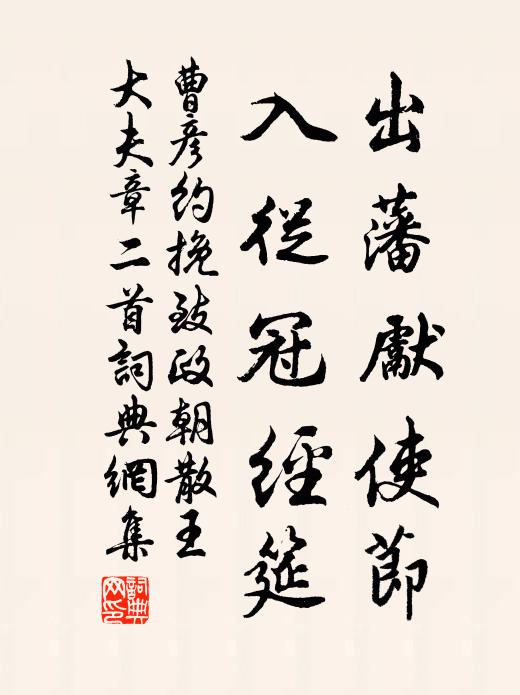 出藩獻使節
入從冠經筵
曹彥約挽致政朝散王
大夫章二首詞典網集
詞典網印